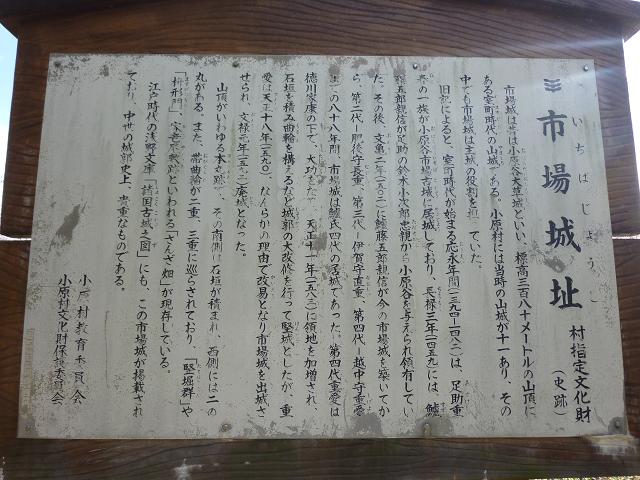 いちばじょうし
市場城址
村指定文化財
(史跡)
市場城は昔は小原谷大草城といい、標高三百八十メートルの山頂に
ある室町時代の山城である。小原村には当時の山城が十一あり、その
中でも市場城は主城の役割を担っていた。
旧記によると、室町時代が始まる応永年間(一三九四―一四八二)は、足助重
春の一族が小原谷市場古城に居城しており、長禄三年(一四五九)には、鱸
藤五郎親信が足助の鈴木小次郎忠親から小原谷を与えられ領有してい
た。その後、文亀二年(一五〇二)に鱸藤五郎親信が今の市場城を築いてか
ら、第二代―肥後守長重、第三代―伊賀守直重、第四代―越中守重愛
までの八十八年間、市場城は鱸氏四代の居城であった。第四代重愛は
徳川家康の下で、大功をたて、天正十一年(一五八三)に領地を加増され、
石垣を積み曲輪を構えるなど城郭の大改修を行って堅城としたが、重
愛は天正十八年(一五九〇)、なんらかの理由で改易となり市場城を出城さ
せられ、文禄元年(一五九二)廃城となった。
山頂がいわゆる本丸跡で、その南側は石垣が積まれ、西側には二の
丸がある。また、帯曲輪が二重、三重に巡らされており、「堅堀群」や
「枡形門」、家老屋敷跡といわれる「さんざ畑」が現存している。
江戸時代の浅野文庫「諸国古城之図」にも、この市場城が掲載され
ており、中世の城郭史上、貴重なものである。
小原村教育委員会
小原村文化財保護委員会